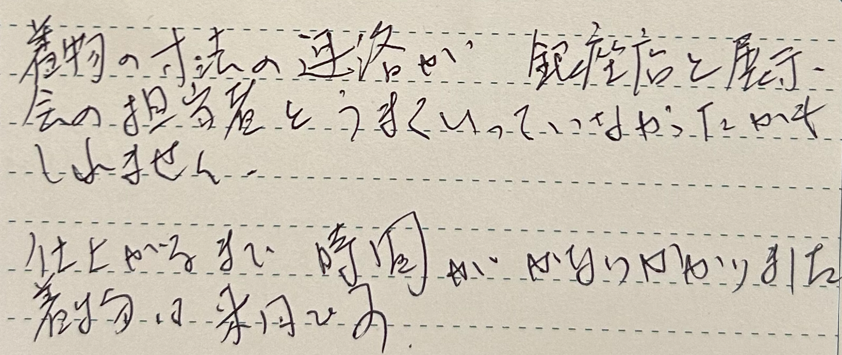 着物の寸法の連絡が 銀座店と展示
会の担当者とうまくいっていなかったかも
しれません.
仕上がるまで 時間がかなりかかりました
着物は来月です.